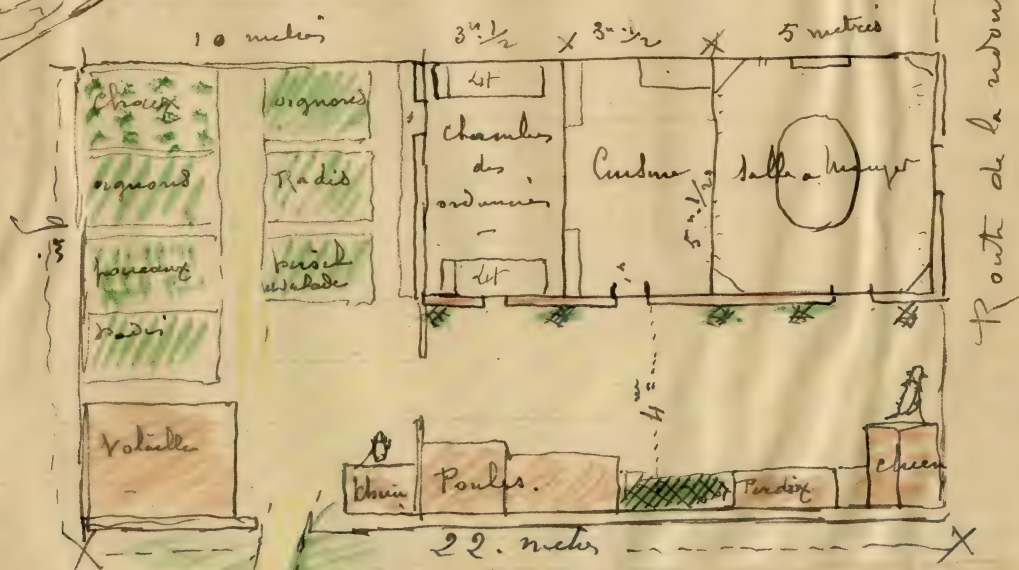 10 metres
3m 1/2
3m 1/2
5 metres
Choux
oignons
oignons
Radis
poireaux
persil
salade
radis
Volailles
Lit
chambre
des
ordonnances
Lit
Cuisine
5m 1/2
Salle a Manger
4m
chien
Poules.
Perdrix
chien
22. metres
Route de la